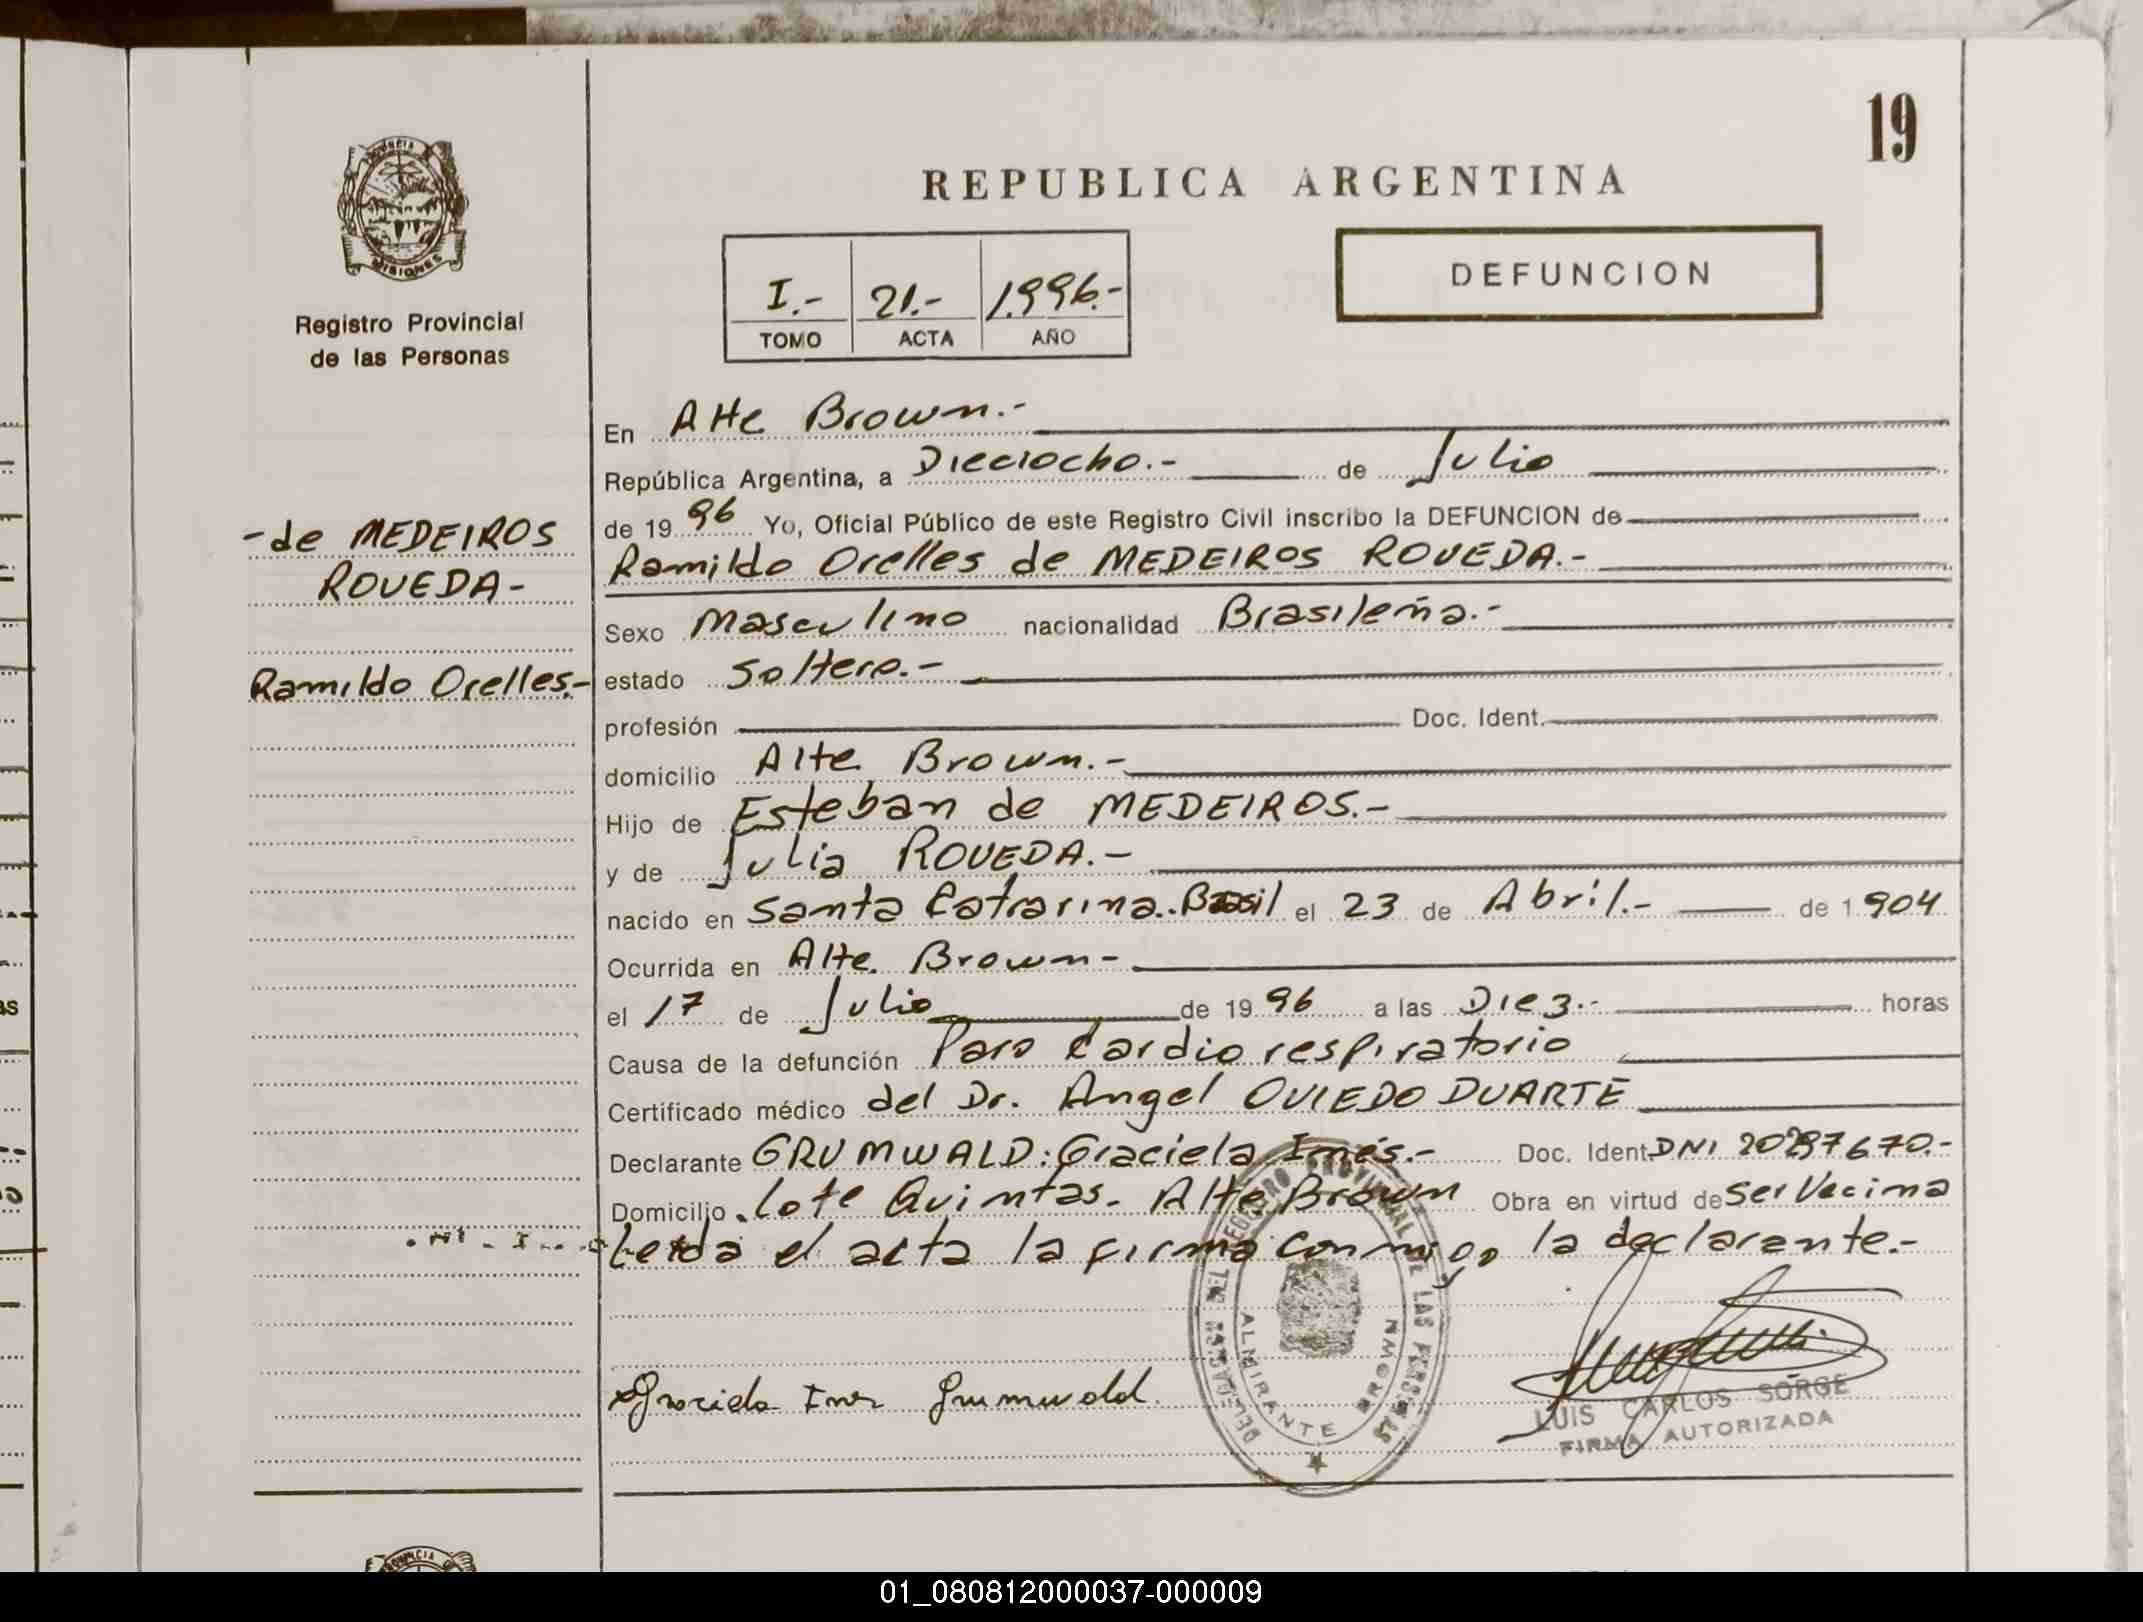 19
PROVINCIA DE
MISIONES
Registro Provincial
de las Personas
REPUBLICA ARGENTINA
I.- 21.- 1.996.-
TOMO ACTA AÑO
DEFUNCION
-de MEDEIROS
ROVEDA-
Ramildo Orelles.-
En Alte Brown.-
República Argentina, a Dieciocho.- de Julio
de 19 96 Yo, Oficial Público de este Registro Civil inscribo la DEFUNCION de
Ramildo Orelles de MEDEIROS ROVEDA.-
Sexo Masculino nacionalidad Brasileña.-
estado Soltero.-
profesión Doc. Ident.
domicilio Alte Brown.-
Hijo de Esteban de MEDEIROS.-
y de Julia ROVEDA.-
nacido en Santa Catarina.. Brasil el 23 de Abril.- de 1 904
Ocurrida en Alte. Brown-
el 17 de Julio de 19 96 a las Diez.- horas
Causa de la defunción Paro Cardio respiratorio
Certificado médico del Dr. Angel OVIEDO DUARTE
Declarante GRUMWALD: Graciela Inés.- Doc. Ident. DNI
Domicilio Lote Quintas. Alte Brown Obra en virtud de ser Vecina
Leida el acta la firma conmigo la declarante.-
Graciela Ines Grumwald
DEL REGISTRO PROVINCIAL DE LAS PERSONAS
ALMIRANTE BROWN
LUIS CARLOS SORGE
FIRMA AUTORIZADA
01_080812000037-000009